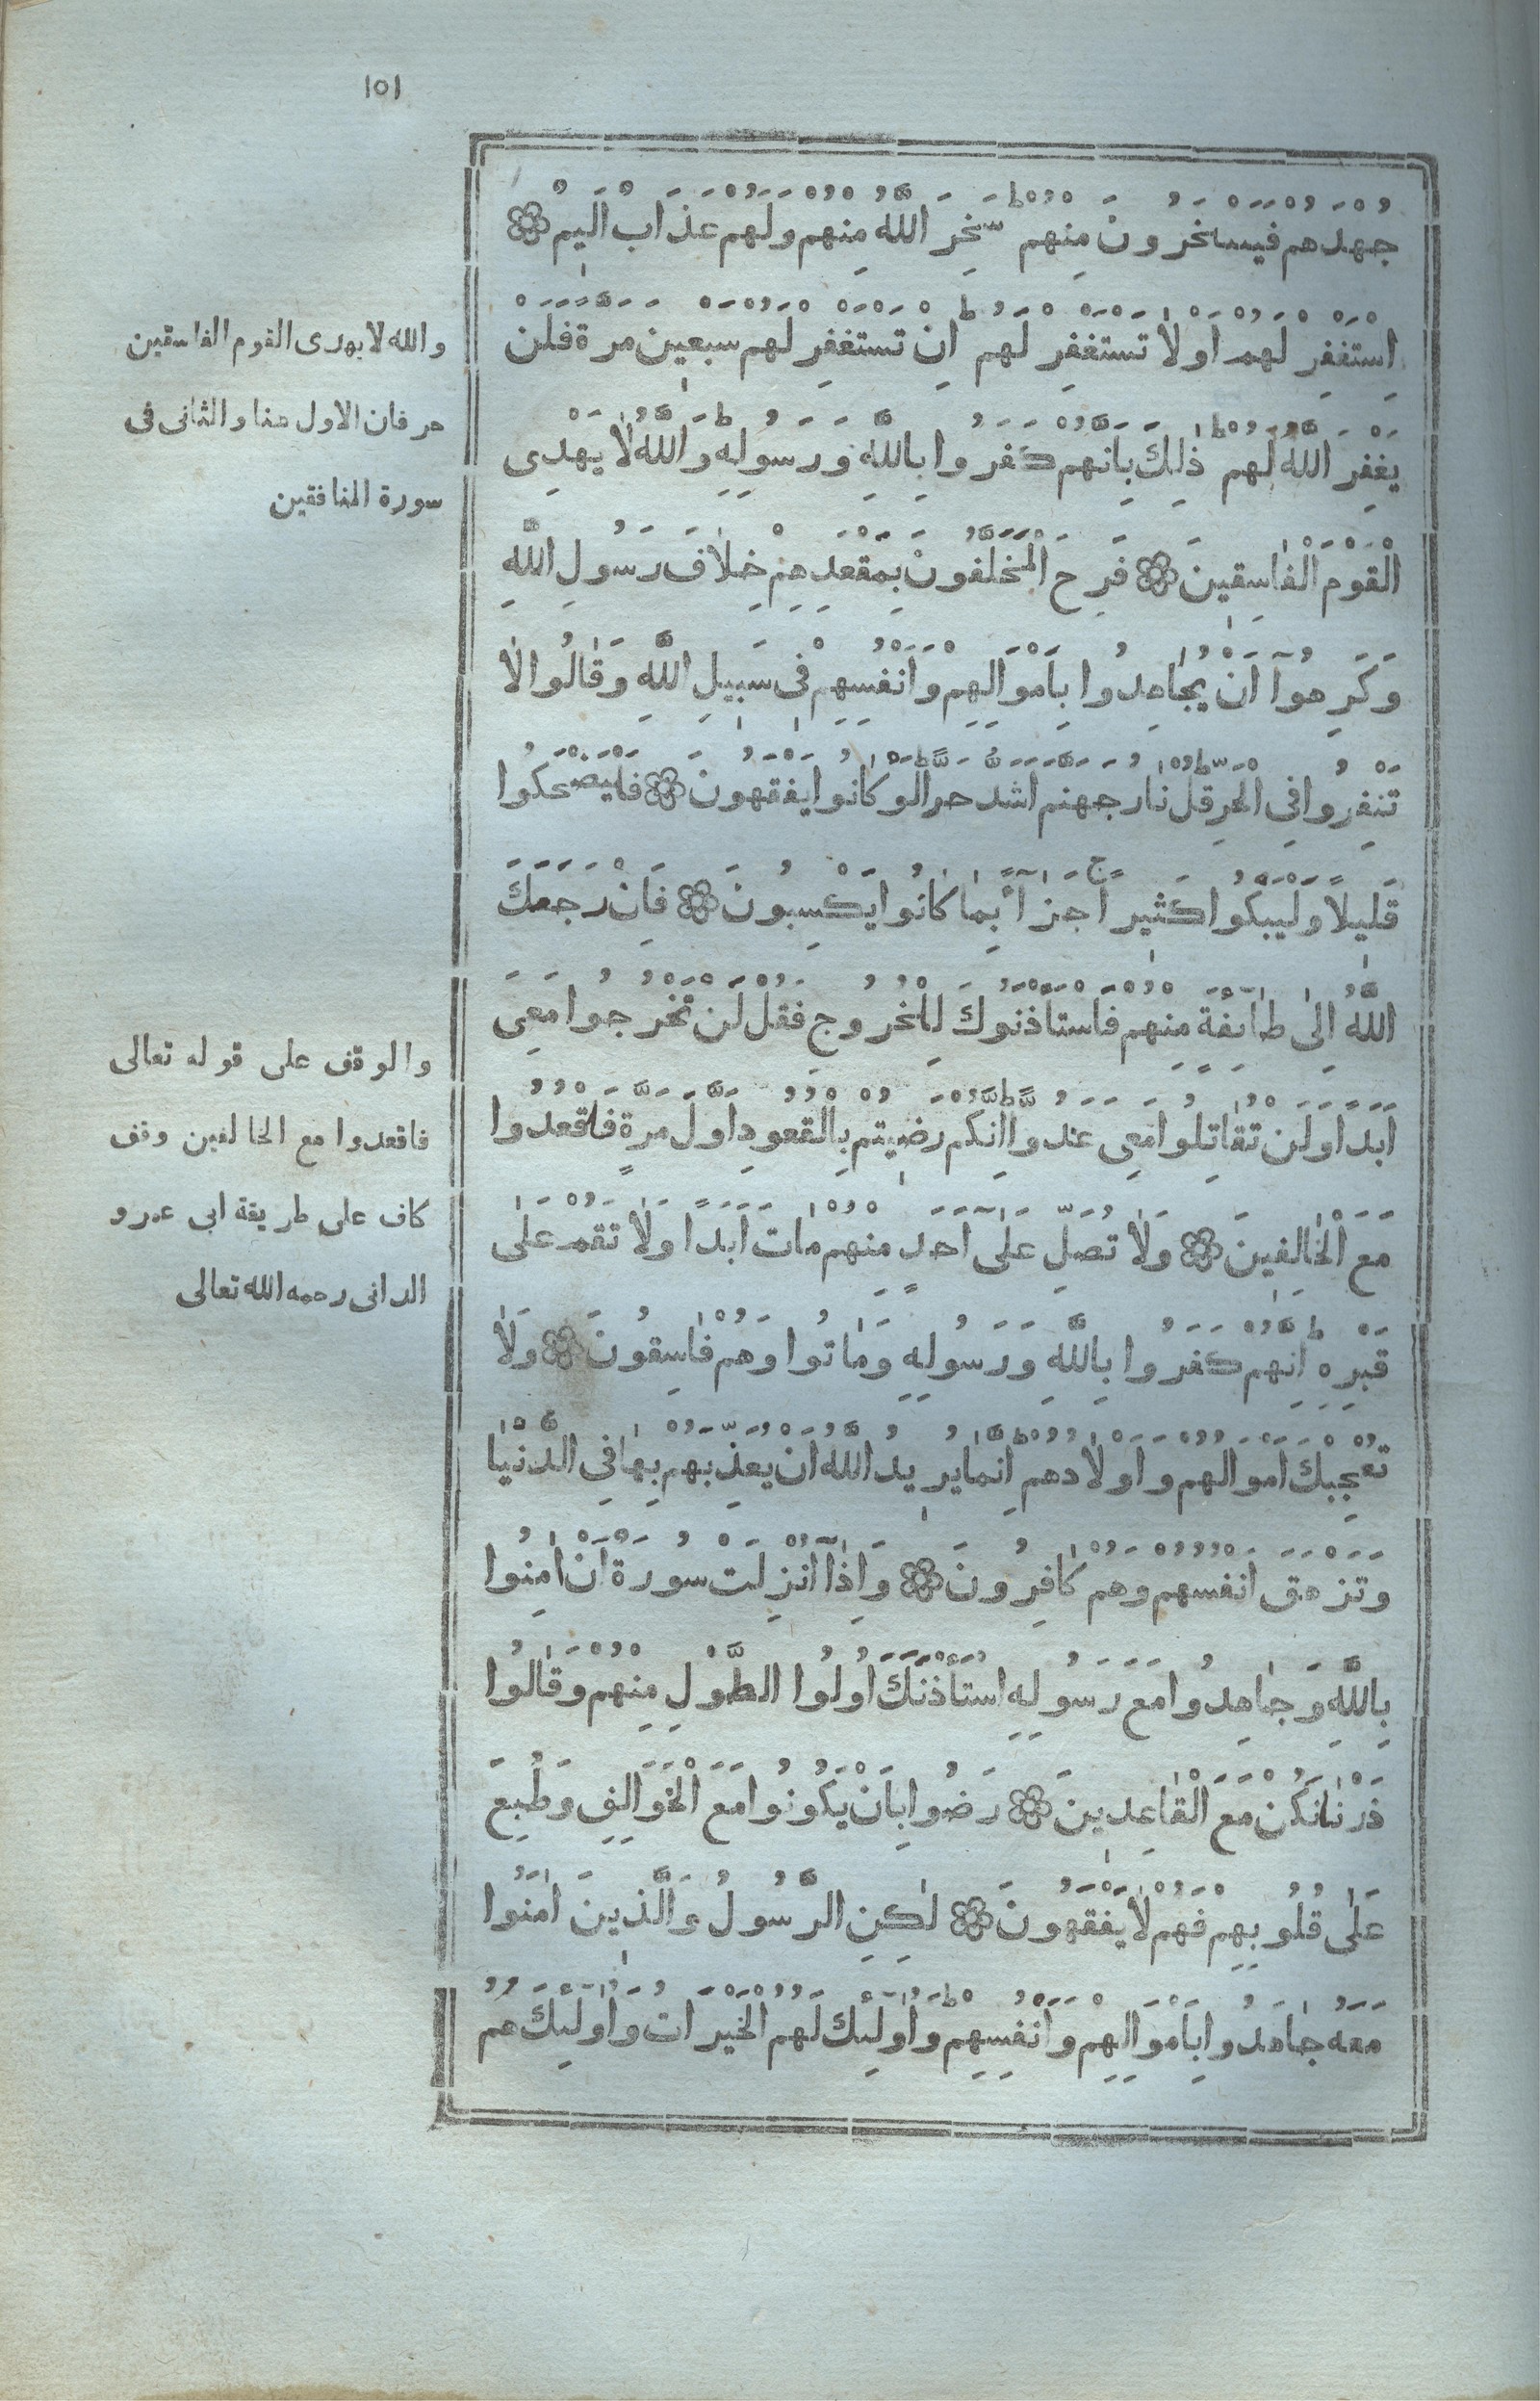 ١٥١
جُهْدَهُمْ فَيَسْخَرُونَ مِنْهُمْ ط سَخِرَ اللَّهُ مِنْهُمْ وَلَهُمْ عَذَابٌ اَلِيمٌ
اِسْتَغْفِرْ لَهُمْ اَوْ لاٰ تَسْتَغْفِرْ لَهُمْ ط اِنْ تَسْتَغْفِرْ لَهُمْ سَبْعِينَ مَرَّةً فَلَنْ
يَغْفِرَ اللَّهُ لَهُمْ ط ذٰلِكَ بِاَنَّهُمْ كَفَرُوا بِاللَّهِ وَرَسُولِهِ ط وَاللَّهُ لاٰ يَهْدِى
الْقَوْمَ الْفٰاسِقِينَ فَرِحَ الْمُخَلَّفُونَ بِمَقْعَدِهِمْ خِلاٰفَ رَسُولِ اللَّهِ
وَكَرِهُوآ اَنْ يُجٰاهِدُوا بِاَمْوَالِهِمْ وَاَنْفُسِهِمْ فِى سَبِيلِ اللَّهِ وَقٰالُوا لاٰ
تَنْفِرُوا فِى الْحَرِّ ط قُلْ نٰارُ جَهَنَّمَ اَشَدُّ حَرًّا ط لَوْ كٰانُوا يَفْقَهُونَ فَلْيَضْحَكُوا
قَلِيلاً وَلْيَبْكُوا كَثِيرًا ج جَزٰآءً بِمٰا كٰانُوا يَكْسِبُونَ فَاِنْ رَجَعَكَ
اللَّهُ اِلٰى طٰآئِفَةٍ مِنْهُمْ فَاسْتَأْذَنُوكَ لِلْخُرُوجِ فَقُلْ لَنْ تَخْرُجُوا مَعِىَ
اَبَدًا وَلَنْ تُقٰاتِلُوا مَعِىَ عَدُوًّا ط اِنَّكُمْ رَضِيتُمْ بِالْقُعُودِ اَوَّلَ مَرَّةٍ فَاقْعُدُوا
مَعَ الْخٰالِفِينَ وَلاٰ تُصَلِّ عَلٰٓى اَحَدٍ مِنْهُمْ مٰاتَ اَبَدًا وَلاٰ تَقُمْ عَلٰى
قَبْرِهِ ط اِنَّهُمْ كَفَرُوا بِاللَّهِ وَرَسُولِهِ وَمٰاتُوا وَهُمْ فٰاسِقُونَ وَلاٰ
تُعْجِبْكَ اَمْوَالُهُمْ وَاَوْلاٰدُهُمْ ط اِنَّمٰا يُرِيدُ اللَّهُ اَنْ يُعَذِّبَهُمْ بِهٰا فِى الدُّنْيٰا
وَتَزْهَقَ اَنْفُسُهُمْ وَهُمْ كٰافِرُونَ وَاِذٰآ اُنْزِلَتْ سُورَةٌ اَنْ اٰمِنُوا
بِاللَّهِ وَجٰاهِدُوا مَعَ رَسُولِهِ اسْتَأْذَنَكَ اُولُوا الطَّوْلِ مِنْهُمْ وَقٰالُوا
ذَرْنٰا نَكُنْ مَعَ الْقٰاعِدِينَ رَضُوا بِاَنْ يَكُونُوا مَعَ الْخَوَالِفِ وَطُبِعَ
عَلٰى قُلُوبِهِمْ فَهُمْ لاٰ يَفْقَهُونَ لٰكِنِ الرَّسُولُ وَالَّذِينَ اٰمَنُوا
مَعَهُ جٰاهَدُوا بِاَمْوَالِهِمْ وَاَنْفُسِهِمْ ط وَاُولٰٓئِكَ لَهُمُ الْخَيْرَاتُ وَاُولٰٓئِكَ هُمُ
والله لا يهدى القوم الفاسقين
حرفان الاول هنا والثانى فى
سورة المنافقين
والوقف على قوله تعالى
فاقعدوا مع الخالفين وقف
كاف على طريقة ابى عمرو
الدانى رحمه الله تعالى